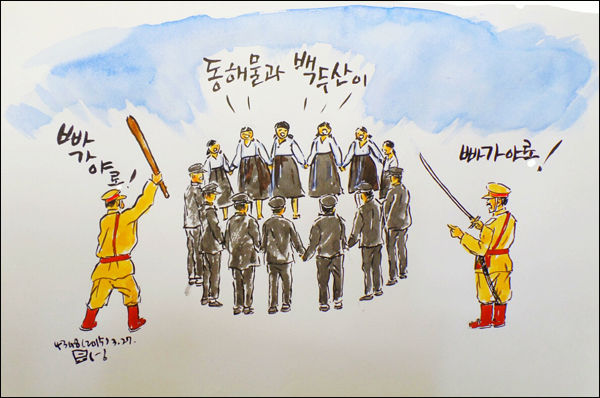 동해물과 백두산이
빠가야로!
빠가야로!
4348(2015).3.27.